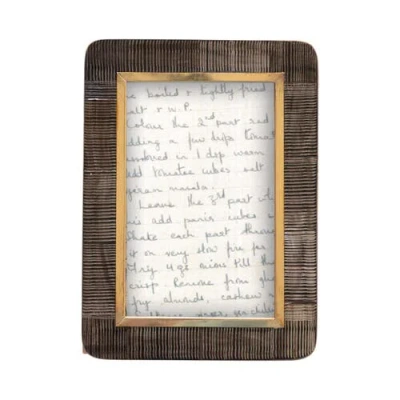 boiled & lightly fried
salt & w.P.
Colour the 2nd part red
adding a few drops tomato
in 1 dsp warm
add tomatoe cubes salt
garam masala.
Leave the 3rd part
add panir cubes
Shake each part
it on very slow fire for
Fry 4 gr onions till
crisp. Remove from
fry almonds, cashew
ginger, gr. chillies